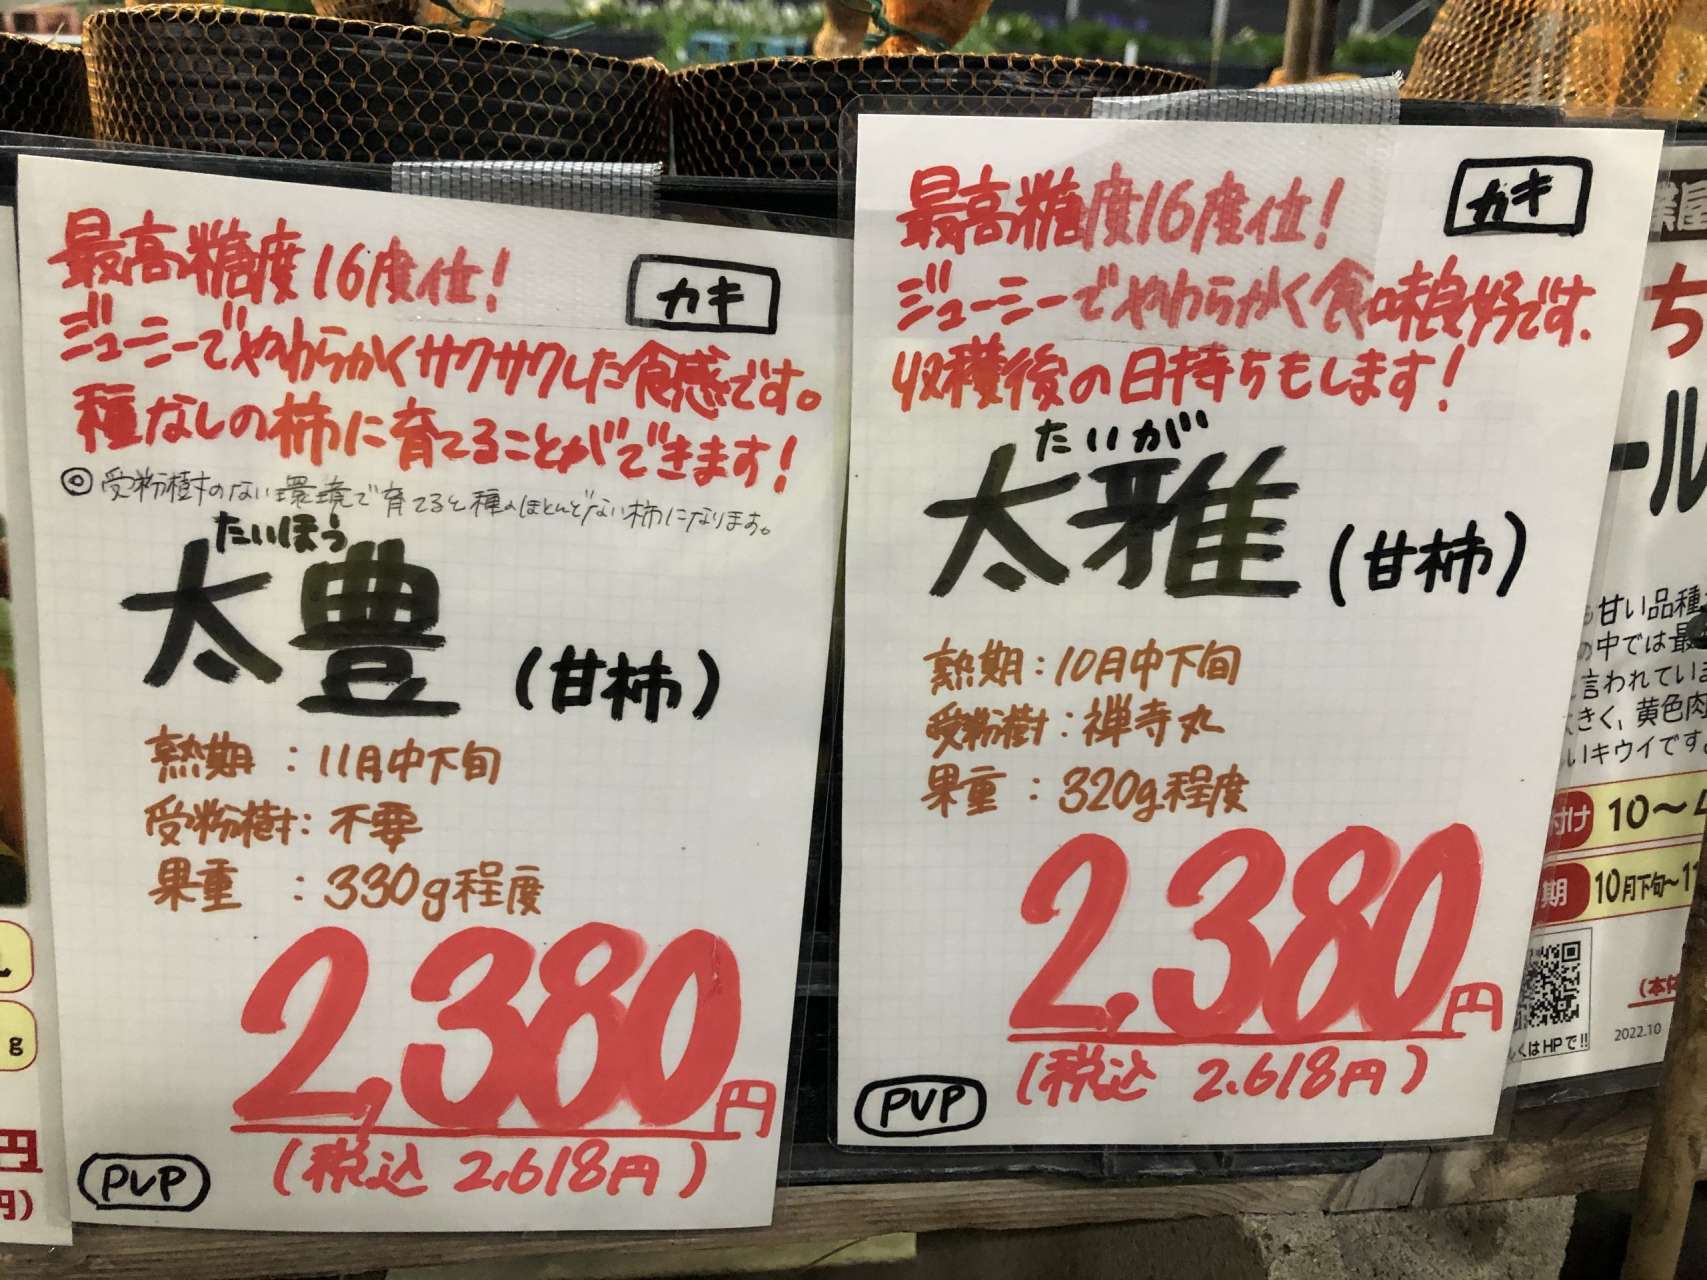 カキ
最高糖度16度位!
ジューシーでやわらかくサクサクした食感です。
種なしの柿に育てることができます!
◎受粉樹のない環境で育てると種のほとんどない柿になります。
たいほう
太豊(甘柿)
熟期:11月中下旬
受粉樹:不要
果重:330g程度
2,380円
(税込 2,618円)
PVP
カキ
最高糖度16度位!
ジューシーでやわらかく食味良好です.
収穫後の日持ちもします!
たいが
太雅(甘柿)
熟期:10月中下旬
受粉樹:禅寺丸
果重:320g程度
2,380円
(税込 2,618円)
PVP
ち
ール
甘い品種
の中では最
言われていま
きく、黄色肉
いキウイです。
付け 10~4
期 10月下旬~11
くはHPで!!
2022.10
(本体
g
円
円)